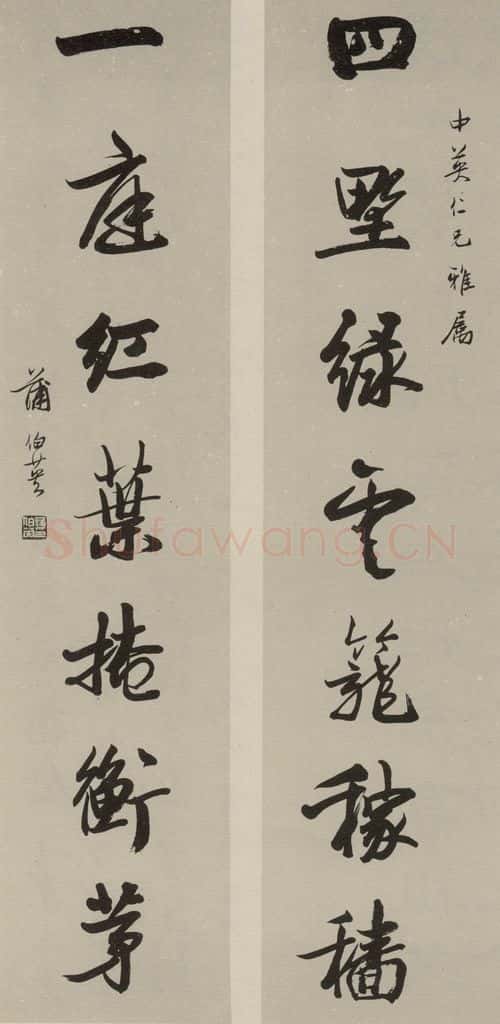 中英仁兄雅属
四墅緑雲籠稼穡
一庭紅葉掩衡茅
蒲伯英
Shufawang.CN